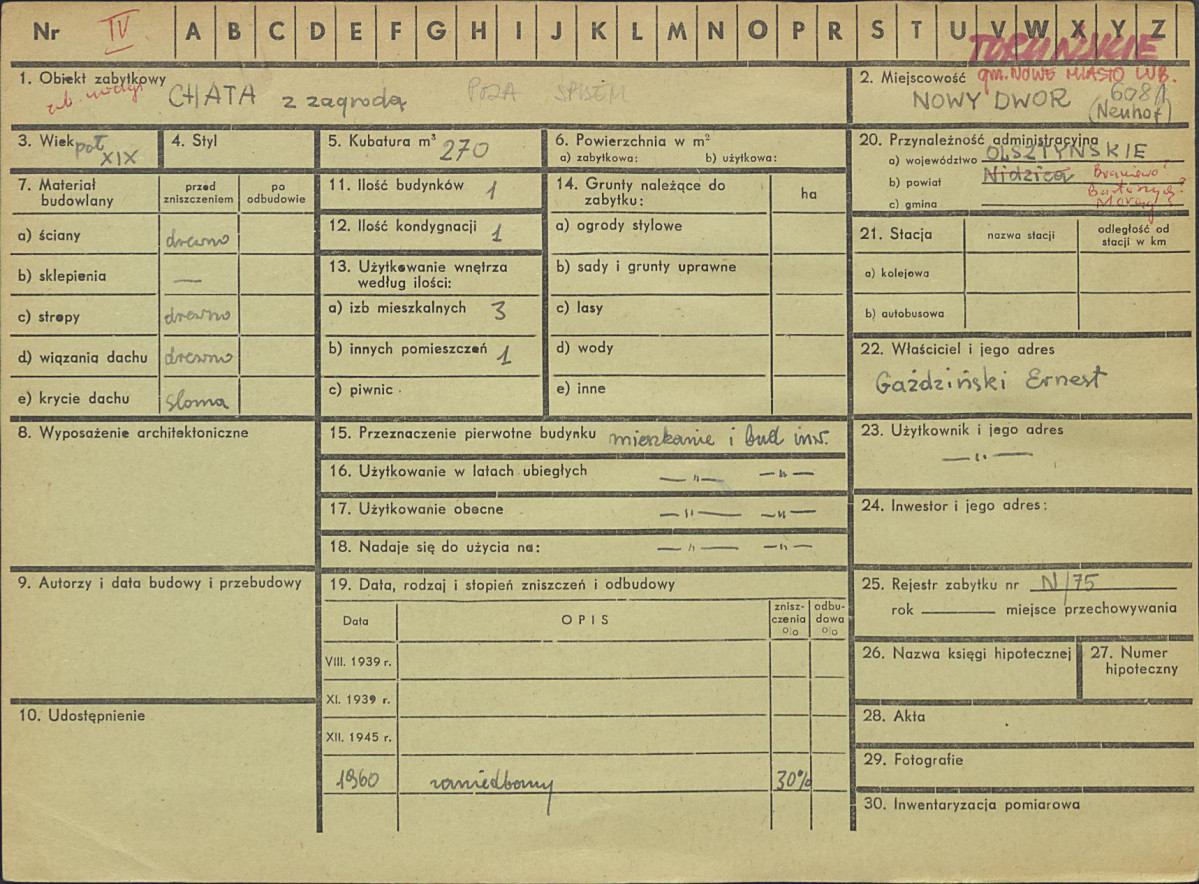 Nr IV A B C D E F G H I J K L M N O P R S T U V W X Y Z
TORUŃSKIE
1. Obiekt zabytkowy
CHATA z zagrodą POZA SPISEM
2. Miejscowość gm. NOWE MIASTO LUB.
NOWY DWÓR 608/1
(Neuhof)
3. Wiek poł XIX
4. Styl
5. Kubatura m³ 270
6. Powierzchnia w m²
a) zabytkowa: b) użytkowa:
7. Materiał budowlany
przed zniszczeniem
po odbudowie
a) ściany drewno
b) sklepienia —
c) stropy drewno
d) wiązania dachu drewno
e) krycie dachu słoma
8. Wyposażenie architektoniczne
9. Autorzy i data budowy i przebudowy
10. Udostępnienie
11. Ilość budynków 1
12. Ilość kondygnacji 1
13. Użytkowanie wnętrza
według ilości:
a) izb mieszkalnych 3
b) innych pomieszczeń 1
c) piwnic
14. Grunty należące do
zabytku:
ha
a) ogrody stylowe
b) sady i grunty uprawne
c) lasy
d) wody
e) inne
15. Przeznaczenie pierwotne budynku mieszkanie i bud inw.
16. Użytkowanie w latach ubiegłych —"— —"—
17. Użytkowanie obecne —"— —"—
18. Nadaje się do użycia na: —"— —"—
19. Data, rodzaj i stopień zniszczeń i odbudowy
Data
OPIS
znisz-
czenia
o/o
odbu-
dowa
o/o
VIII. 1939 r.
XI. 1939 r.
XII. 1945 r.
1960 zaniedbany 30%
20. Przynależność administracyjna
a) województwo OLSZTYŃSKIE
b) powiat Nidzica Braniewo?
Bartoszyce?
c) gmina Morąg?
21. Stacja
nazwa stacji
odległość od
stacji w km
a) kolejowa
b) autobusowa
22. Właściciel i jego adres
Gaździński Ernest
23. Użytkownik i jego adres
—"—
24. Inwestor i jego adres:
25. Rejestr zabytku nr N/75
rok miejsce przechowywania
26. Nazwa księgi hipotecznej
27. Numer
hipoteczny
28. Akta
29. Fotografie
30. Inwentaryzacja pomiarowa